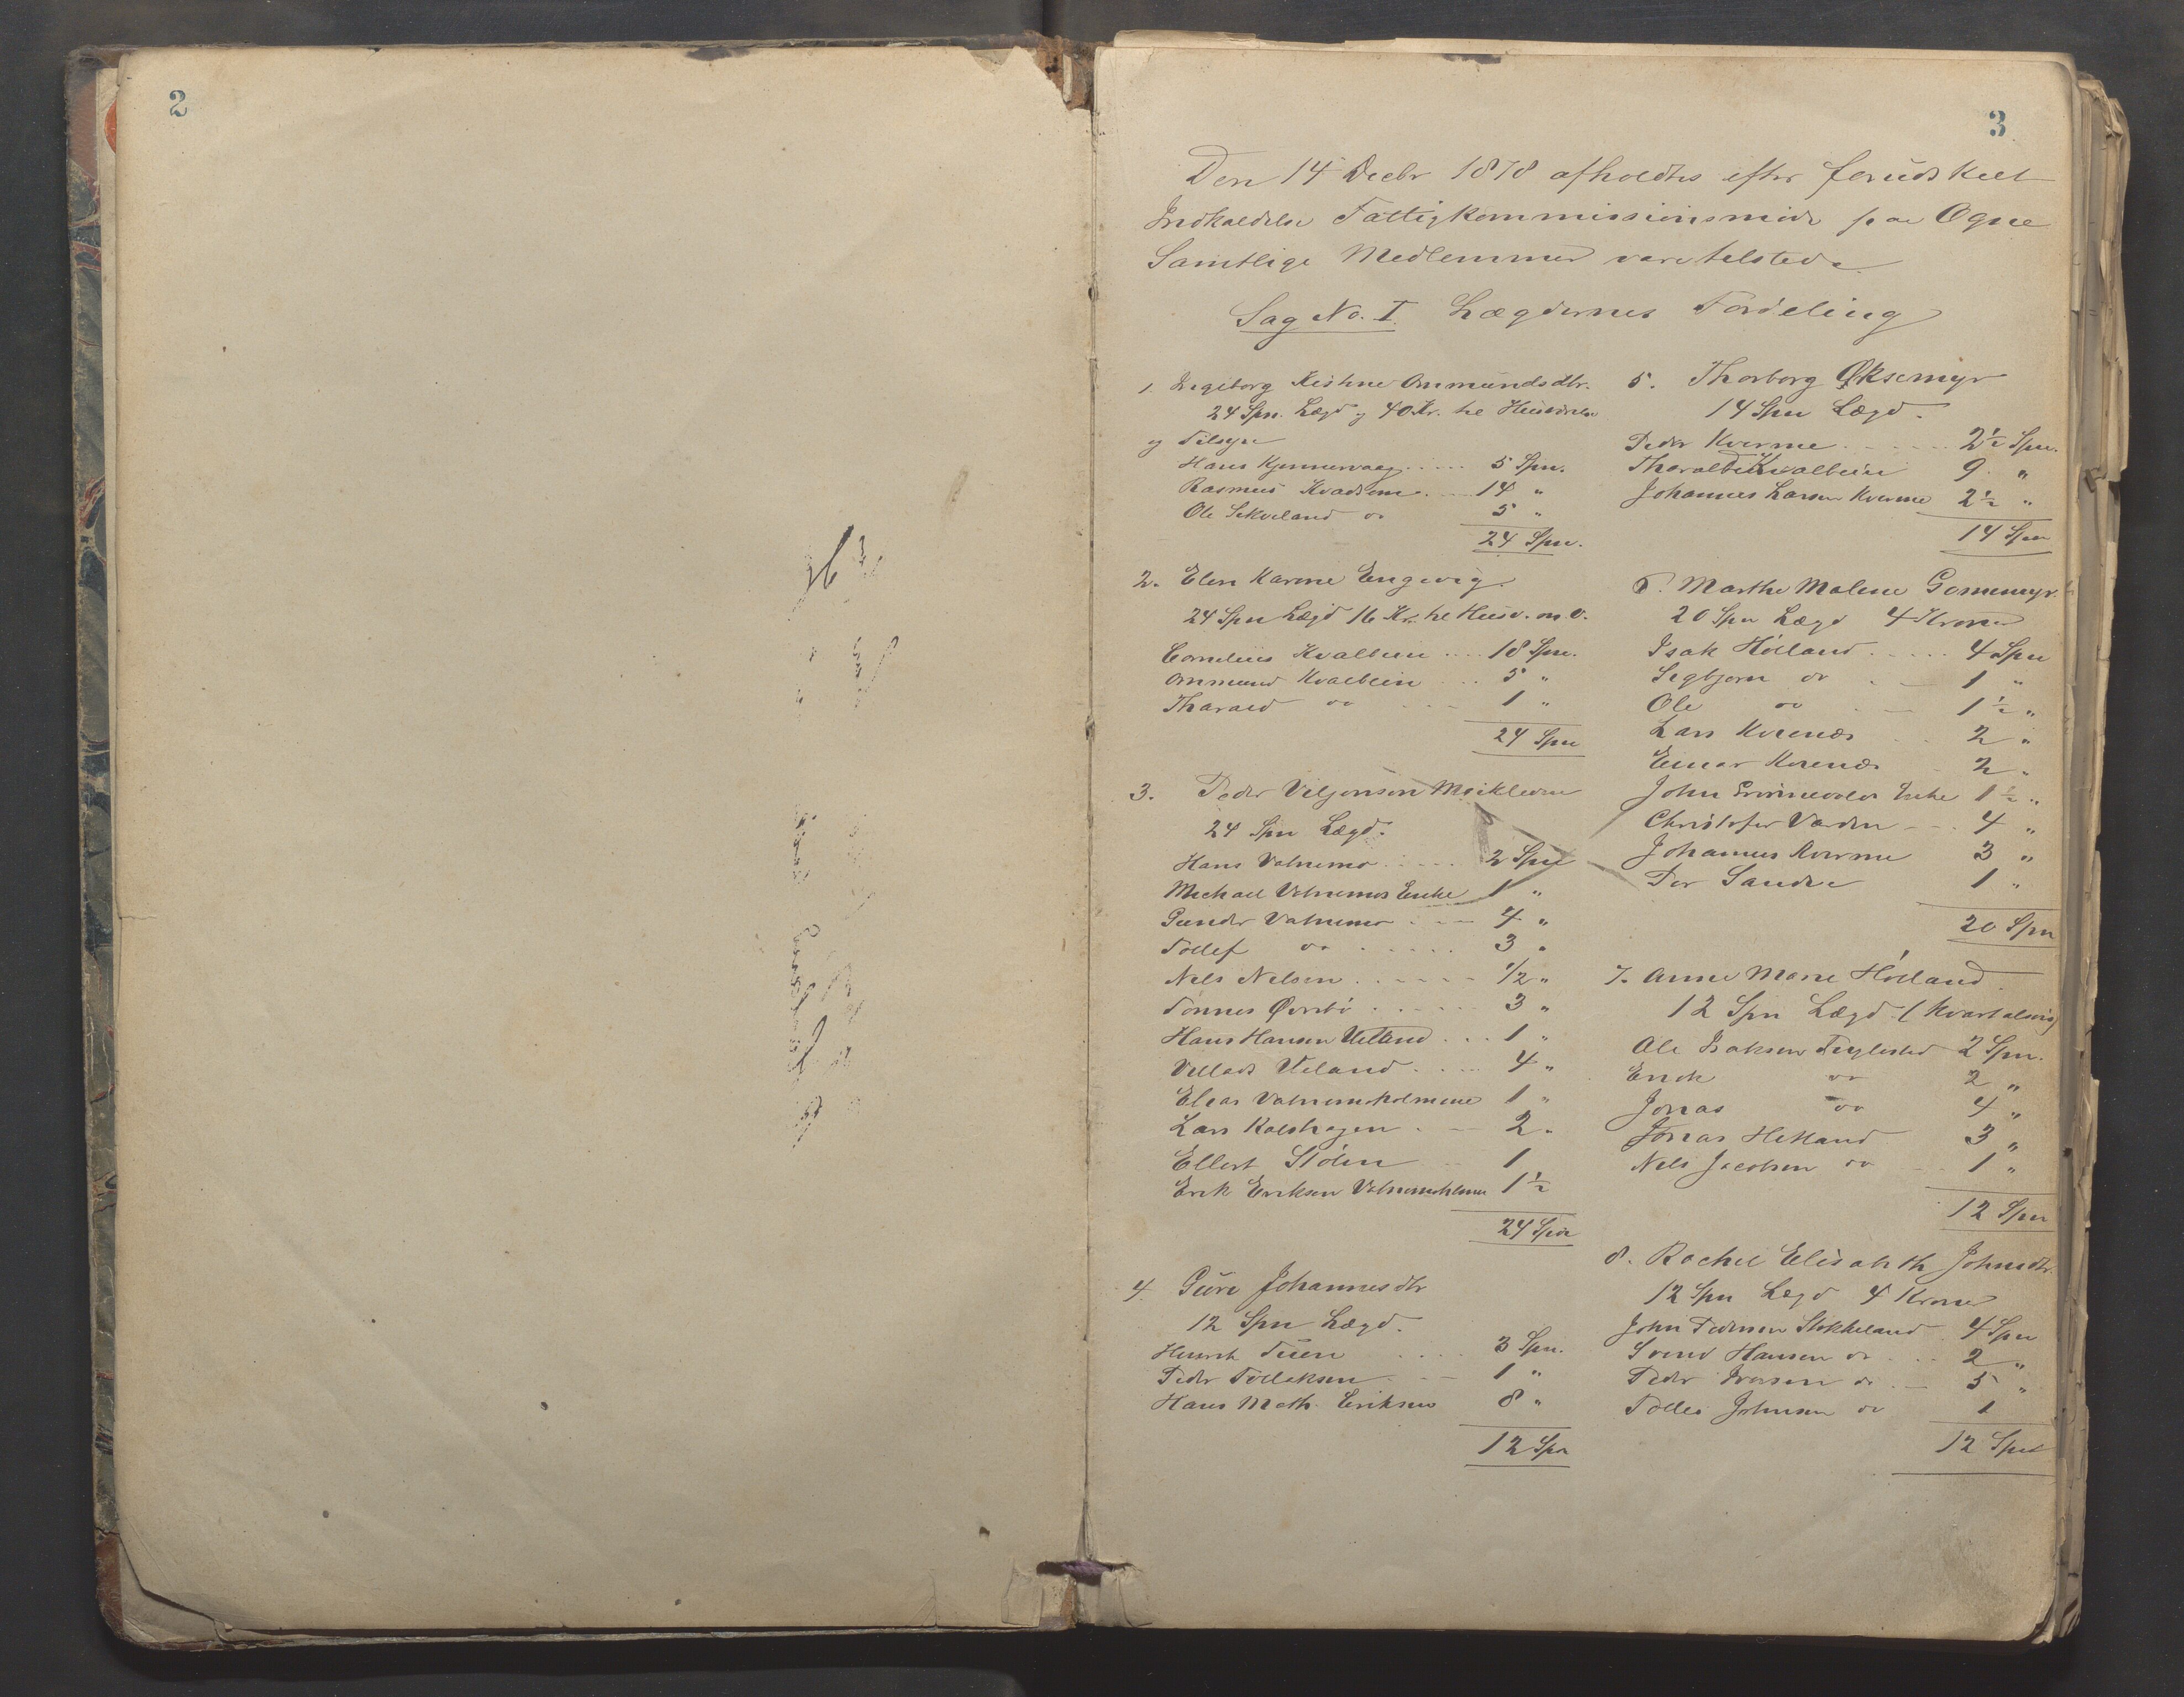 2
3
Den 14 Decbr 1878 afholdtes efter forudskeet
Indkaldelse Fattigkommissionsmøde paa Ogne
Samtlige Medlemmer vare tilstede
Sag No. I. Lægdernes Fordeling
1. Ingeborg Kistine Ommundsdtr.
24 Spn. Lægd og 40 Kr. til Huusværelse
og Tilsyn
Hans Kjennervaag ..... 5 Spn.
Rasmus Kvadsem .... 14 "
Ole Sekveland do 5 "
24 Spn.
2. Elen Karine Engevig.
24 Spn Lægd 16 Kr. til Husv. m.v.
Cornelius Kvalbein .... 18 Spn.
Ommund Kvalbein ... 5 "
Tharald do ... 1 "
24 Spn
3. Peder Veljonsen Meikleoen
24 Spn Lægd.
Hans Vatnemo ..... 2 Spn
Michael Vatnemos Enke 1 "
Gunder Vatnemo ... 4 "
Tollef do ..... 3 "
Nels Nelsen ..... 1/2 "
Tønnes Øvrebø ..... 3 "
Hans Hansen Ueland ... 1 "
Vellads Ueland .... 4 "
Elias Vatnemoholmene 1 "
Lars Kolshagen .. 2 "
Ellert Stølen .. 1
Erik Eriksen Vatnemoholmene 1 1/2
24 Spn
4. Guri Johannesdtr
12 Spn Lægd.
Henrik Tuen .... 3 Spn.
Peder Tollaksen ... 1 "
Hans Math. Eriksen 8 "
12 Spn
5. Thorborg Øksemyr
14 Spn Lægd.
Peder Kverme ..... 2 1/2 Spn.
Tharald Kvalbein 9 "
Johannes Larsen Kverme 2 1/2 "
14 Spn
6. Marthe Malene Gomemyr.
20 Spn Lægd 4 Kroner
Isak Hølland ..... 4 Spn
Segbjørn do .. 1 "
Ole do .. 1 1/2 "
Lars Kvenæs .. 2 "
Einar Kvenæs . 2 "
John Enke 1 1/2 "
Christofer Varden .. 4 "
Johannes Kverme 3 "
Per Sandve 1 "
20 Spn
7. Anne Marie Hølland
12 Spn Lægd (Kvartalsvis)
Ole Isaksen Teglested 2 Spn.
Enok do 2 "
Jonas do 4 "
Jonas Hetland 3 "
Nels Jacobsen do .. 1 "
12 Spn
8. Rachel Elisabeth Johnsdtr.
12 Spn Lægd 4 Kroner
John Pedersen Stokkeland 4 Spn
Svend Hansen do .. 2 "
Peder Iversen do .. 5 "
Tolles Johnsen do 1
12 Spn